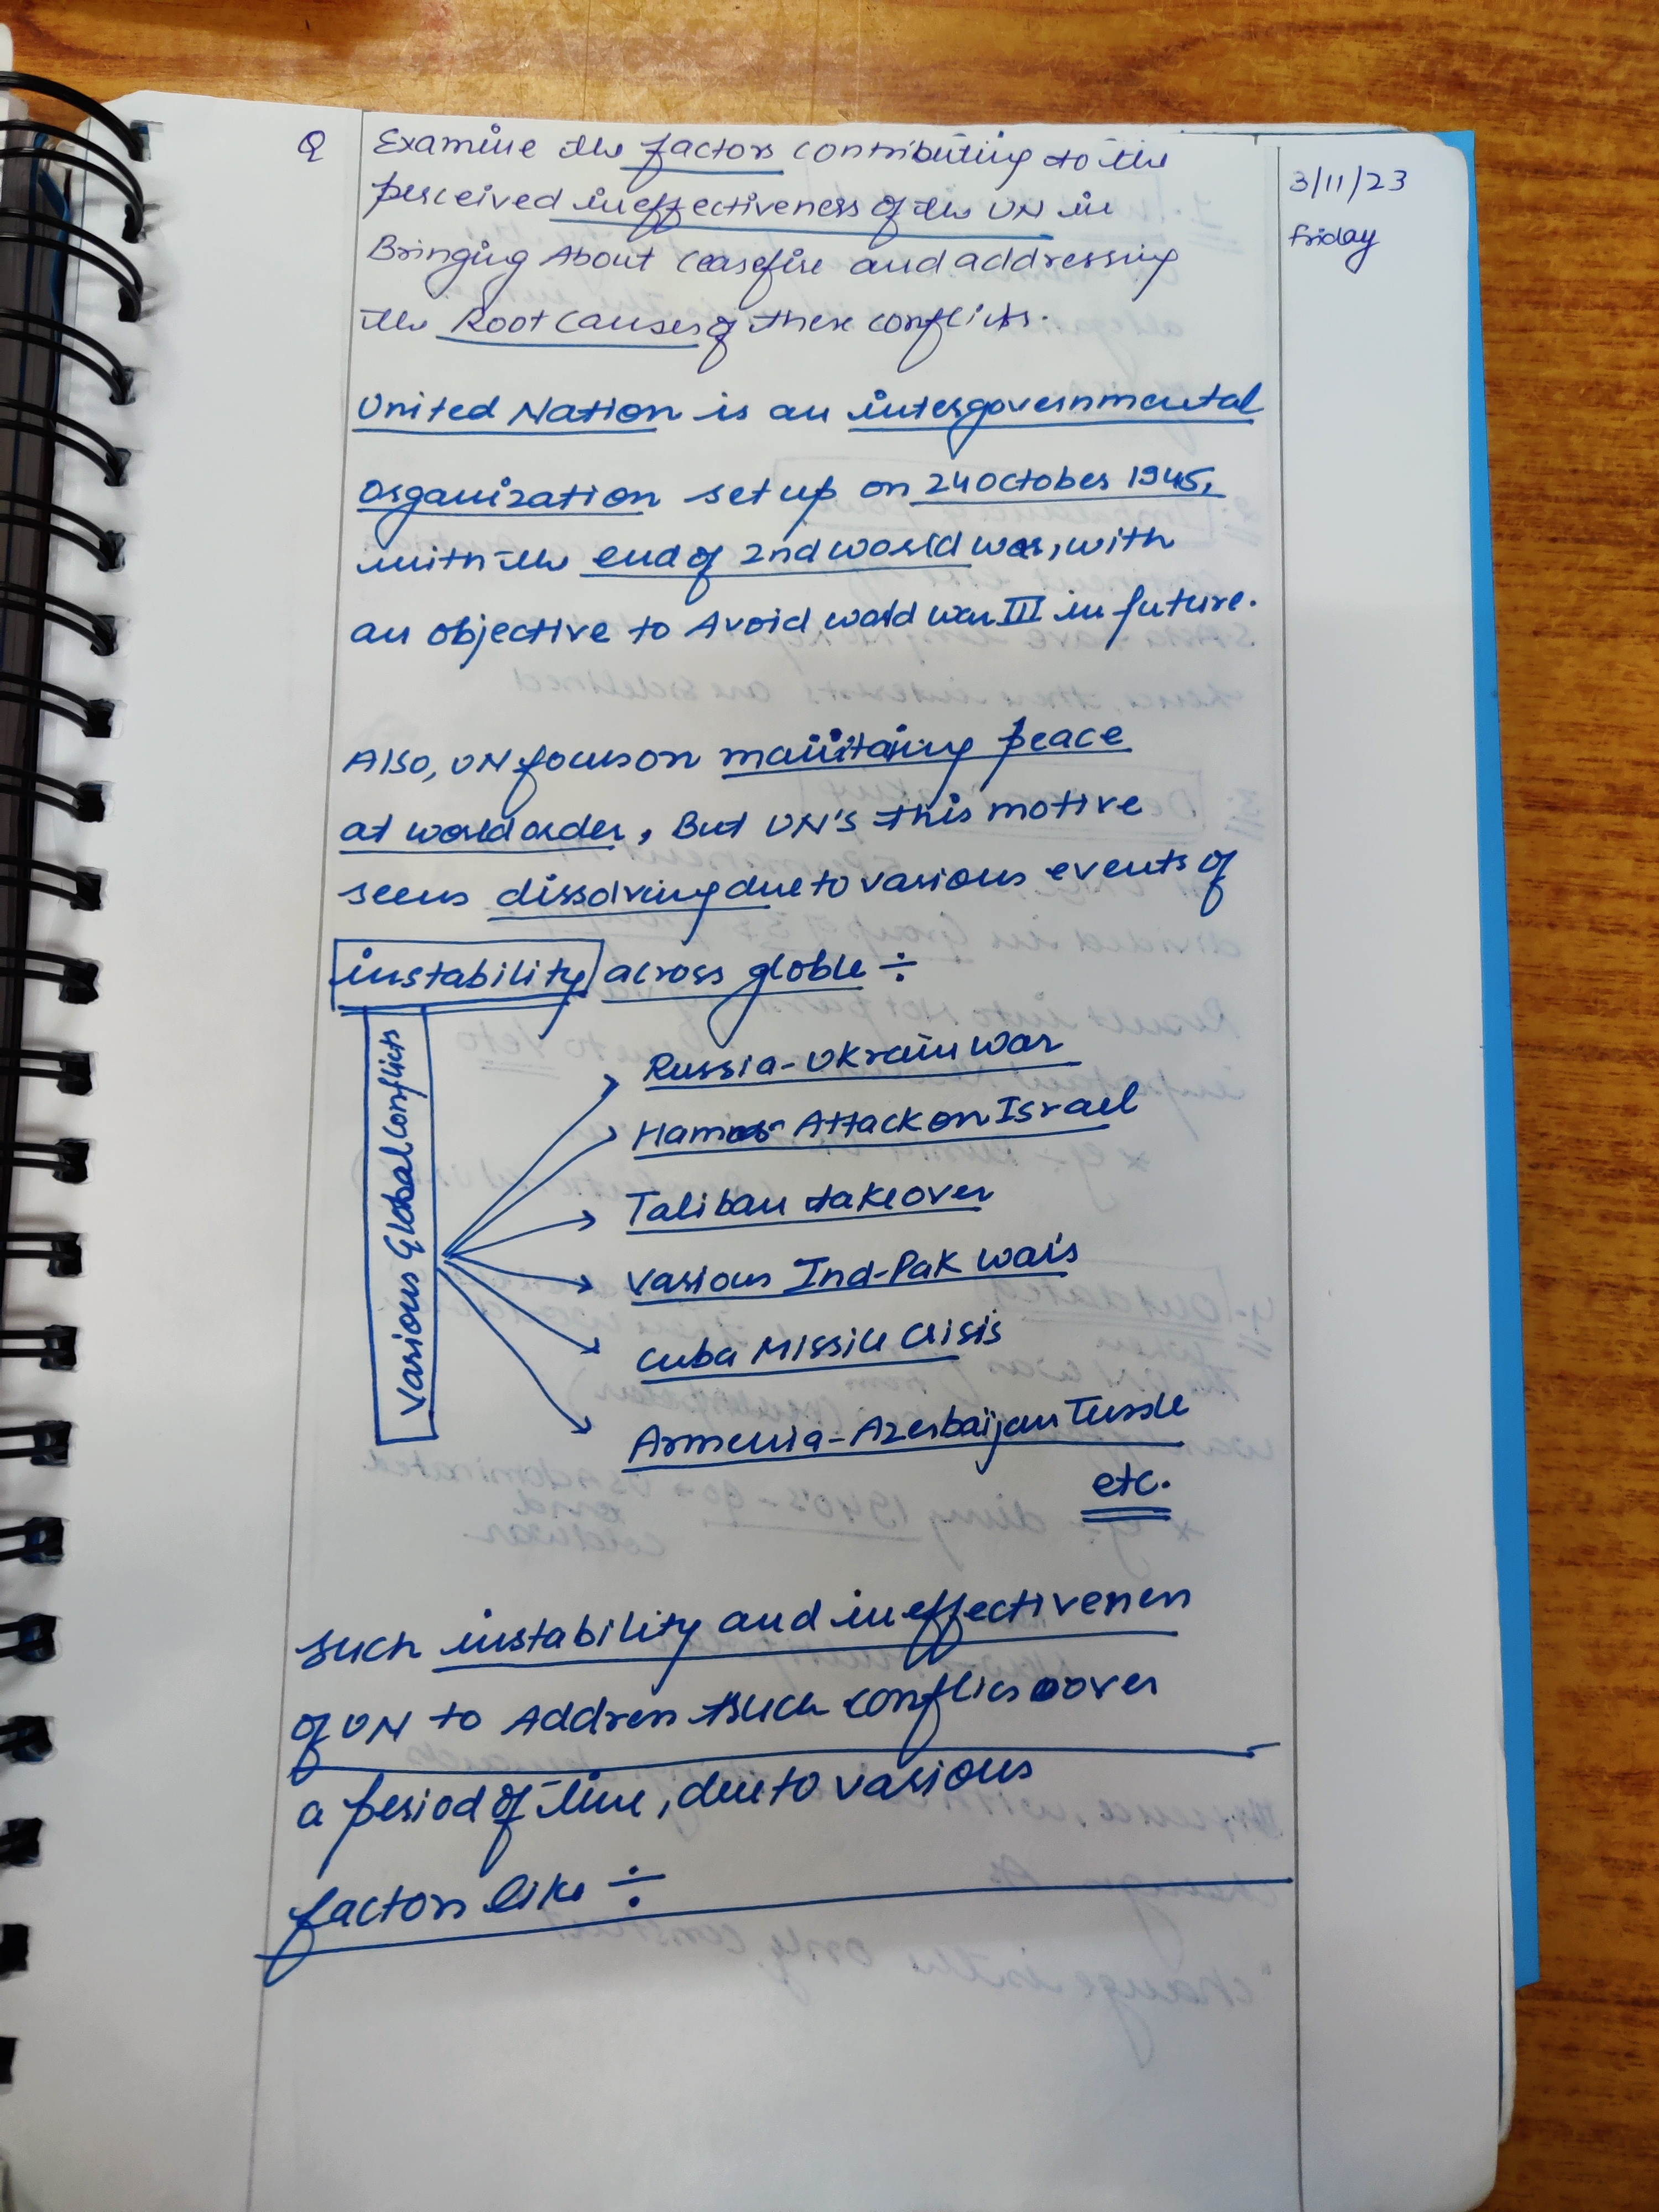 Q Examine the factors contributing to the
perceived ineffectiveness of the UN in
Bringing About ceasefire and addressing
the Root causes of these conflicts.
3/11/23
Friday
United Nation is an intergovernmental
organization set up on 24 October 1945,
with the end of 2nd world war, with
an objective to Avoid world war III in future.
Also, UN focus on maintaing peace
at world order, But UN's this motive
seens dissolving due to various events of
instability across globle ÷
Various Global Conflicts
Russia-Ukrain war
Hamas Attack on Israel
Taliban takeover
various Ind-Pak wars
Cuba Missile Crisis
Armenia-Azerbaijan Tussle
etc.
such instability and ineffectiveness
of UN to Address such conflics over
a period of time, due to various
factors like ÷